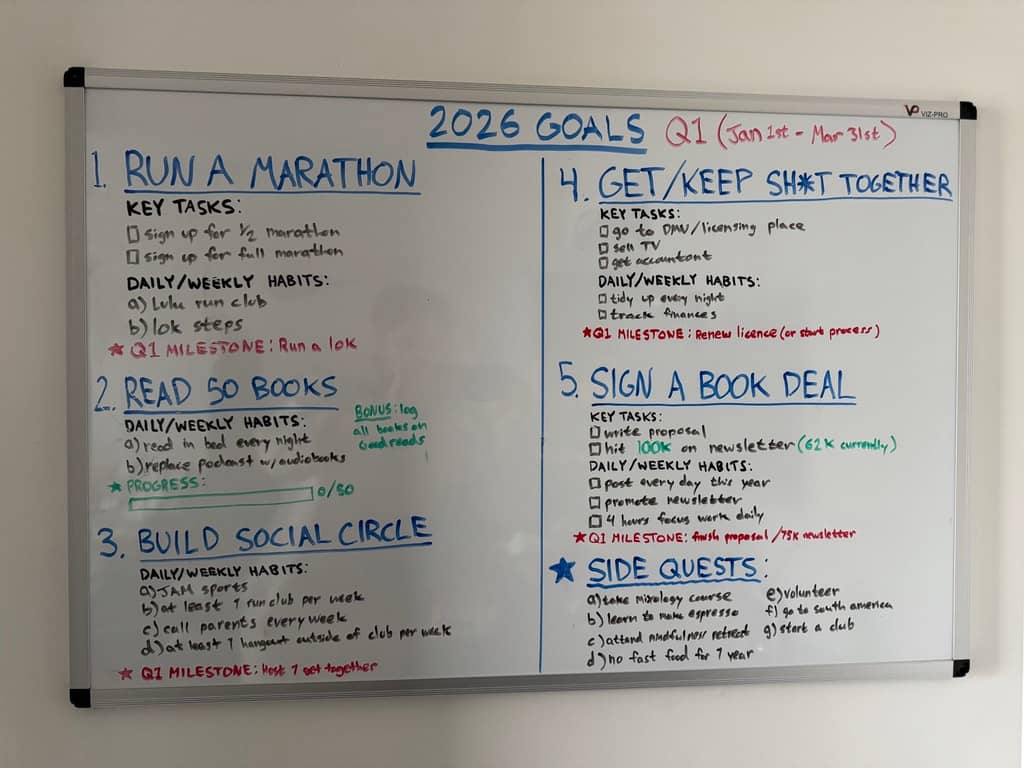 VP VIZ-PRO
2026 GOALS Q1 (Jan 1st - Mar 31st)
1. RUN A MARATHON
KEY TASKS:
☐ sign up for 1/2 marathon
☐ sign up for full marathon
DAILY/WEEKLY HABITS:
a) Lulu run club
b) 10k steps
★ Q1 MILESTONE: Run a 10k
2. READ 50 BOOKS
DAILY/WEEKLY HABITS:
a) read in bed every night
b) replace podcast w/ audiobooks
BONUS: log
all books on
Goodreads
★ PROGRESS:
0/50
3. BUILD SOCIAL CIRCLE
DAILY/WEEKLY HABITS:
a) JAM sports
b) at least 1 run club per week
c) call parents every week
d) at least 1 hangout outside of club per week
★ Q1 MILESTONE: Host 1 get together
4. GET/KEEP SH*T TOGETHER
KEY TASKS:
☐ go to DMV/licensing place
☐ sell TV
☐ get accountant
DAILY/WEEKLY HABITS:
☐ tidy up every night
☐ track finances
★ Q1 MILESTONE: Renew licence (or start process)
5. SIGN A BOOK DEAL
KEY TASKS:
☐ write proposal
☐ hit 100K on newsletter (62K currently)
DAILY/WEEKLY HABITS:
☐ post every day this year
☐ promote newsletter
☐ 4 hours focus work daily
★ Q1 MILESTONE: finish proposal / 75K newsletter
★ SIDE QUESTS:
a) take mixology course
b) learn to make espresso
c) attend mindfulness retreat
d) no fast food for 1 year
e) volunteer
f) go to south america
g) start a club